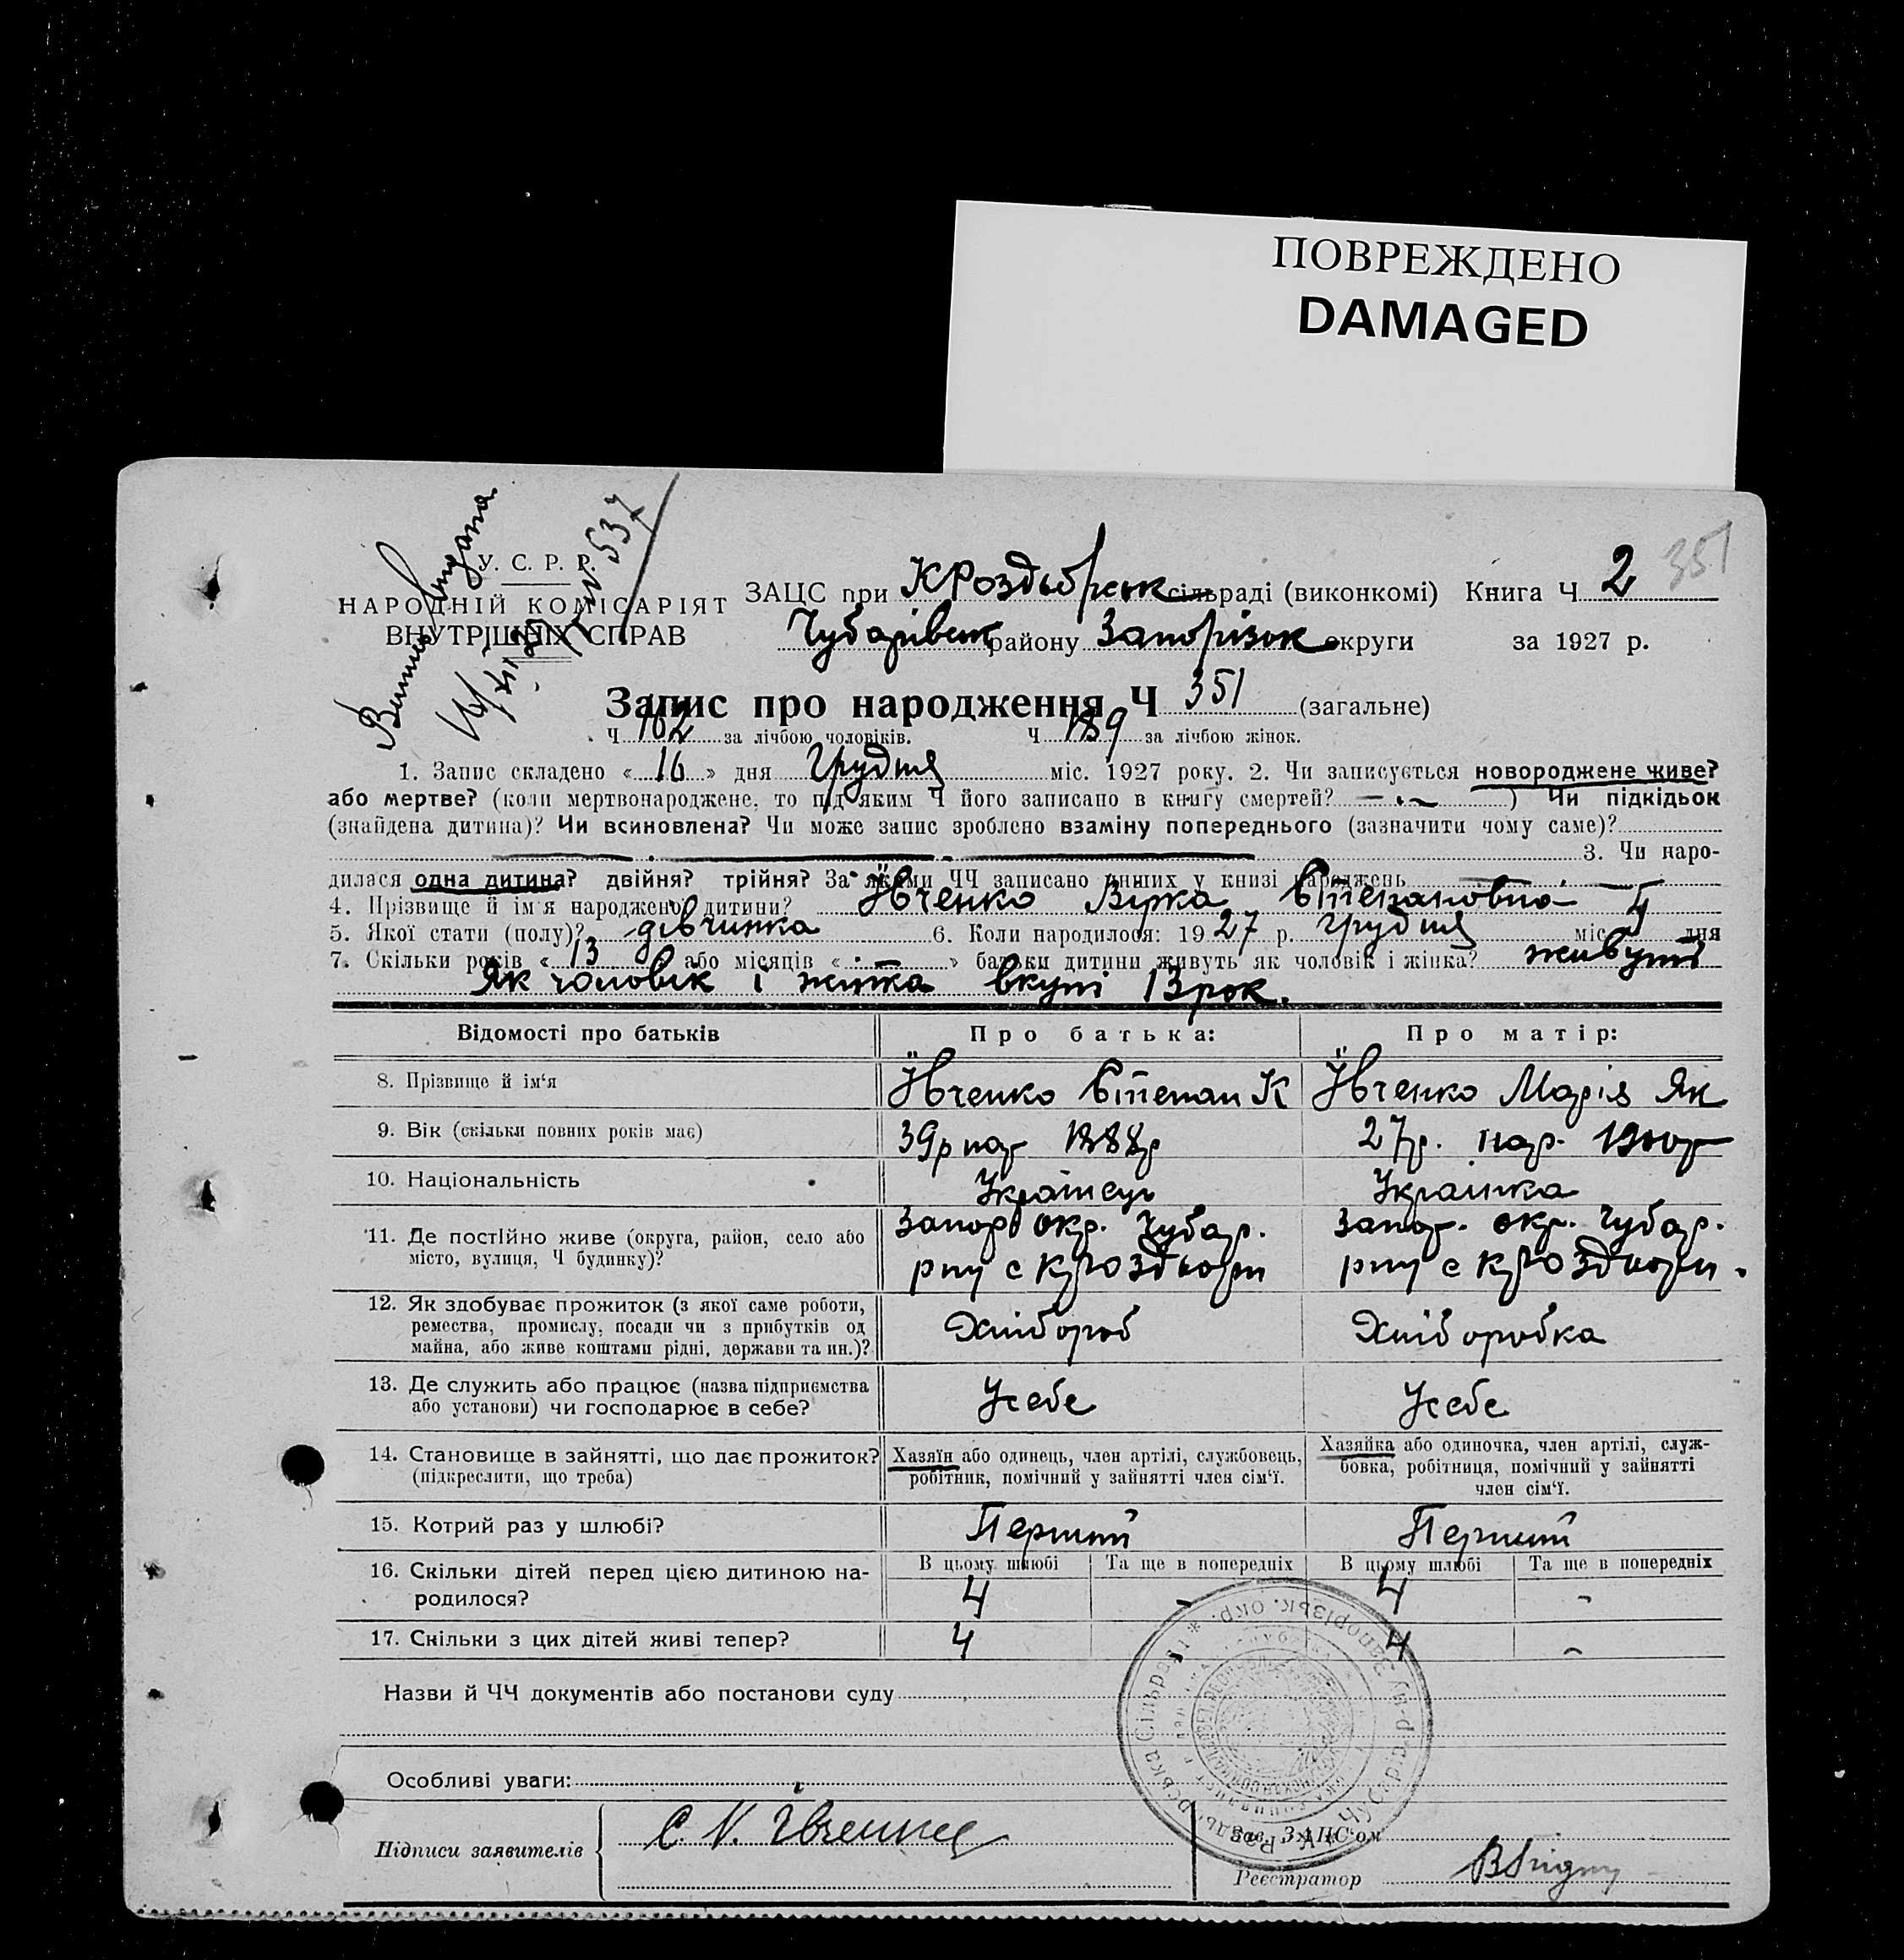 ПОВРЕЖДЕНО
DAMAGED
351
У. С. Р. Р.
НАРОДНІЙ КОМІСАРІЯТ
ВНУТРІШНІХ СПРАВ
ЗАЦС при К Роздорськ сільраді (виконкомі) Книга Ч 2
Чубарівськ району Запорізьк округи за 1927 р.
Запис про народження Ч 351 (загальне)
Ч 162 за лічбою чоловіків. Ч 189 за лічбою жінок.
1. Запис складено « 16 » дня Грудня міс. 1927 року. 2. Чи записується новороджене живе?
або мертве? (коли мертвонароджене, то під яким Ч його записано в книгу смертей? ) Чи підкідьок
(знайдена дитина)? Чи всиновлена? Чи може запис зроблено взаміну попереднього (зазначити чому саме)?
3. Чи наро-
дилася одна дитина? двійня? трійня? За якими ЧЧ записано инших у книзі народжень
4. Прізвище й ім'я народженої дитини? Івченко Вірка Степановна
5. Якої стати (полу)? дівчинка 6. Коли народилося: 1927 р. грудня міс. 5 дня
7. Скільки років « 13 » або місяців « - » батьки дитини живуть як чоловік і жінка? живуть
Як чоловік і жінка вкупі 13 рок.
Відомості про батьків Про батька: Про матір:
8. Прізвище й ім'я Івченко Степан К Івченко Марія Як
9. Вік (скільки повних років має) 39 р нар 1888 р 27 р. нар. 1900 р
10. Національність Українець Українка
11. Де постійно живе (округа, район, село або Запор окр. Чубар. Запор. окр. Чубар.
місто, вулиця, Ч будинку)? рну с К Роздори рну с К Роздори.
12. Як здобуває прожиток (з якої саме роботи,
ремества, промислу, посади чи з прибутків од Хлібороб Хліборобка
майна, або живе коштами рідні, держави та ин.)?
13. Де служить або працює (назва підприємства Усебе Усебе
або установи) чи господарює в себе?
14. Становище в зайнятті, що дає прожиток? Хазяїн або одинець, член артілі, службовець, Хазяйка або одиночка, член артілі, служ-
(підкреслити, що треба) робітник, помічний у зайнятті член сім'ї. бовка, робітниця, помічний у зайнятті
член сім'ї.
15. Котрий раз у шлюбі? Перший Перший
16. Скільки дітей перед цією дитиною на- В цьому шлюбі Та ще в попередніх В цьому шлюбі Та ще в попередніх
родилося? 4 - 4 -
17. Скільки з цих дітей живі тепер? 4 4 -
Назви й ЧЧ документів або постанови суду
Особливі уваги:
Підписи заявителів С. К. Івченко
Зав. ЗАЦС'ом
Реєстратор